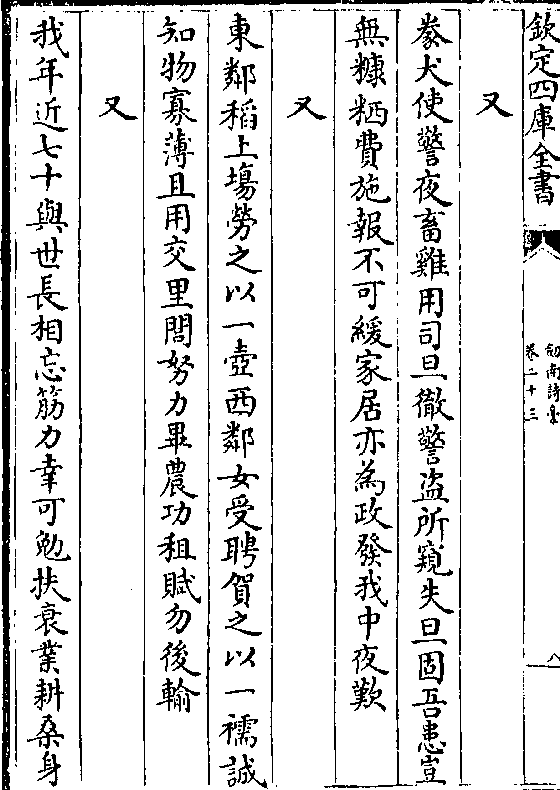 欽定四庫全書
劒南詩藁
卷二十三
八
又
豢犬使警夜畜雞用司旦徹警盗所窺失旦固吾患豈
無糠粞費施報不可緩家居亦為政發我中夜歎
又
東鄰稻上塲勞之以一壺西鄰女受聘賀之以一襦誠
知物寡薄且用交里閭努力畢農功租賦勿後輸
又
我年近七十與世長相忘筋力幸可勉扶衰業耕桑身